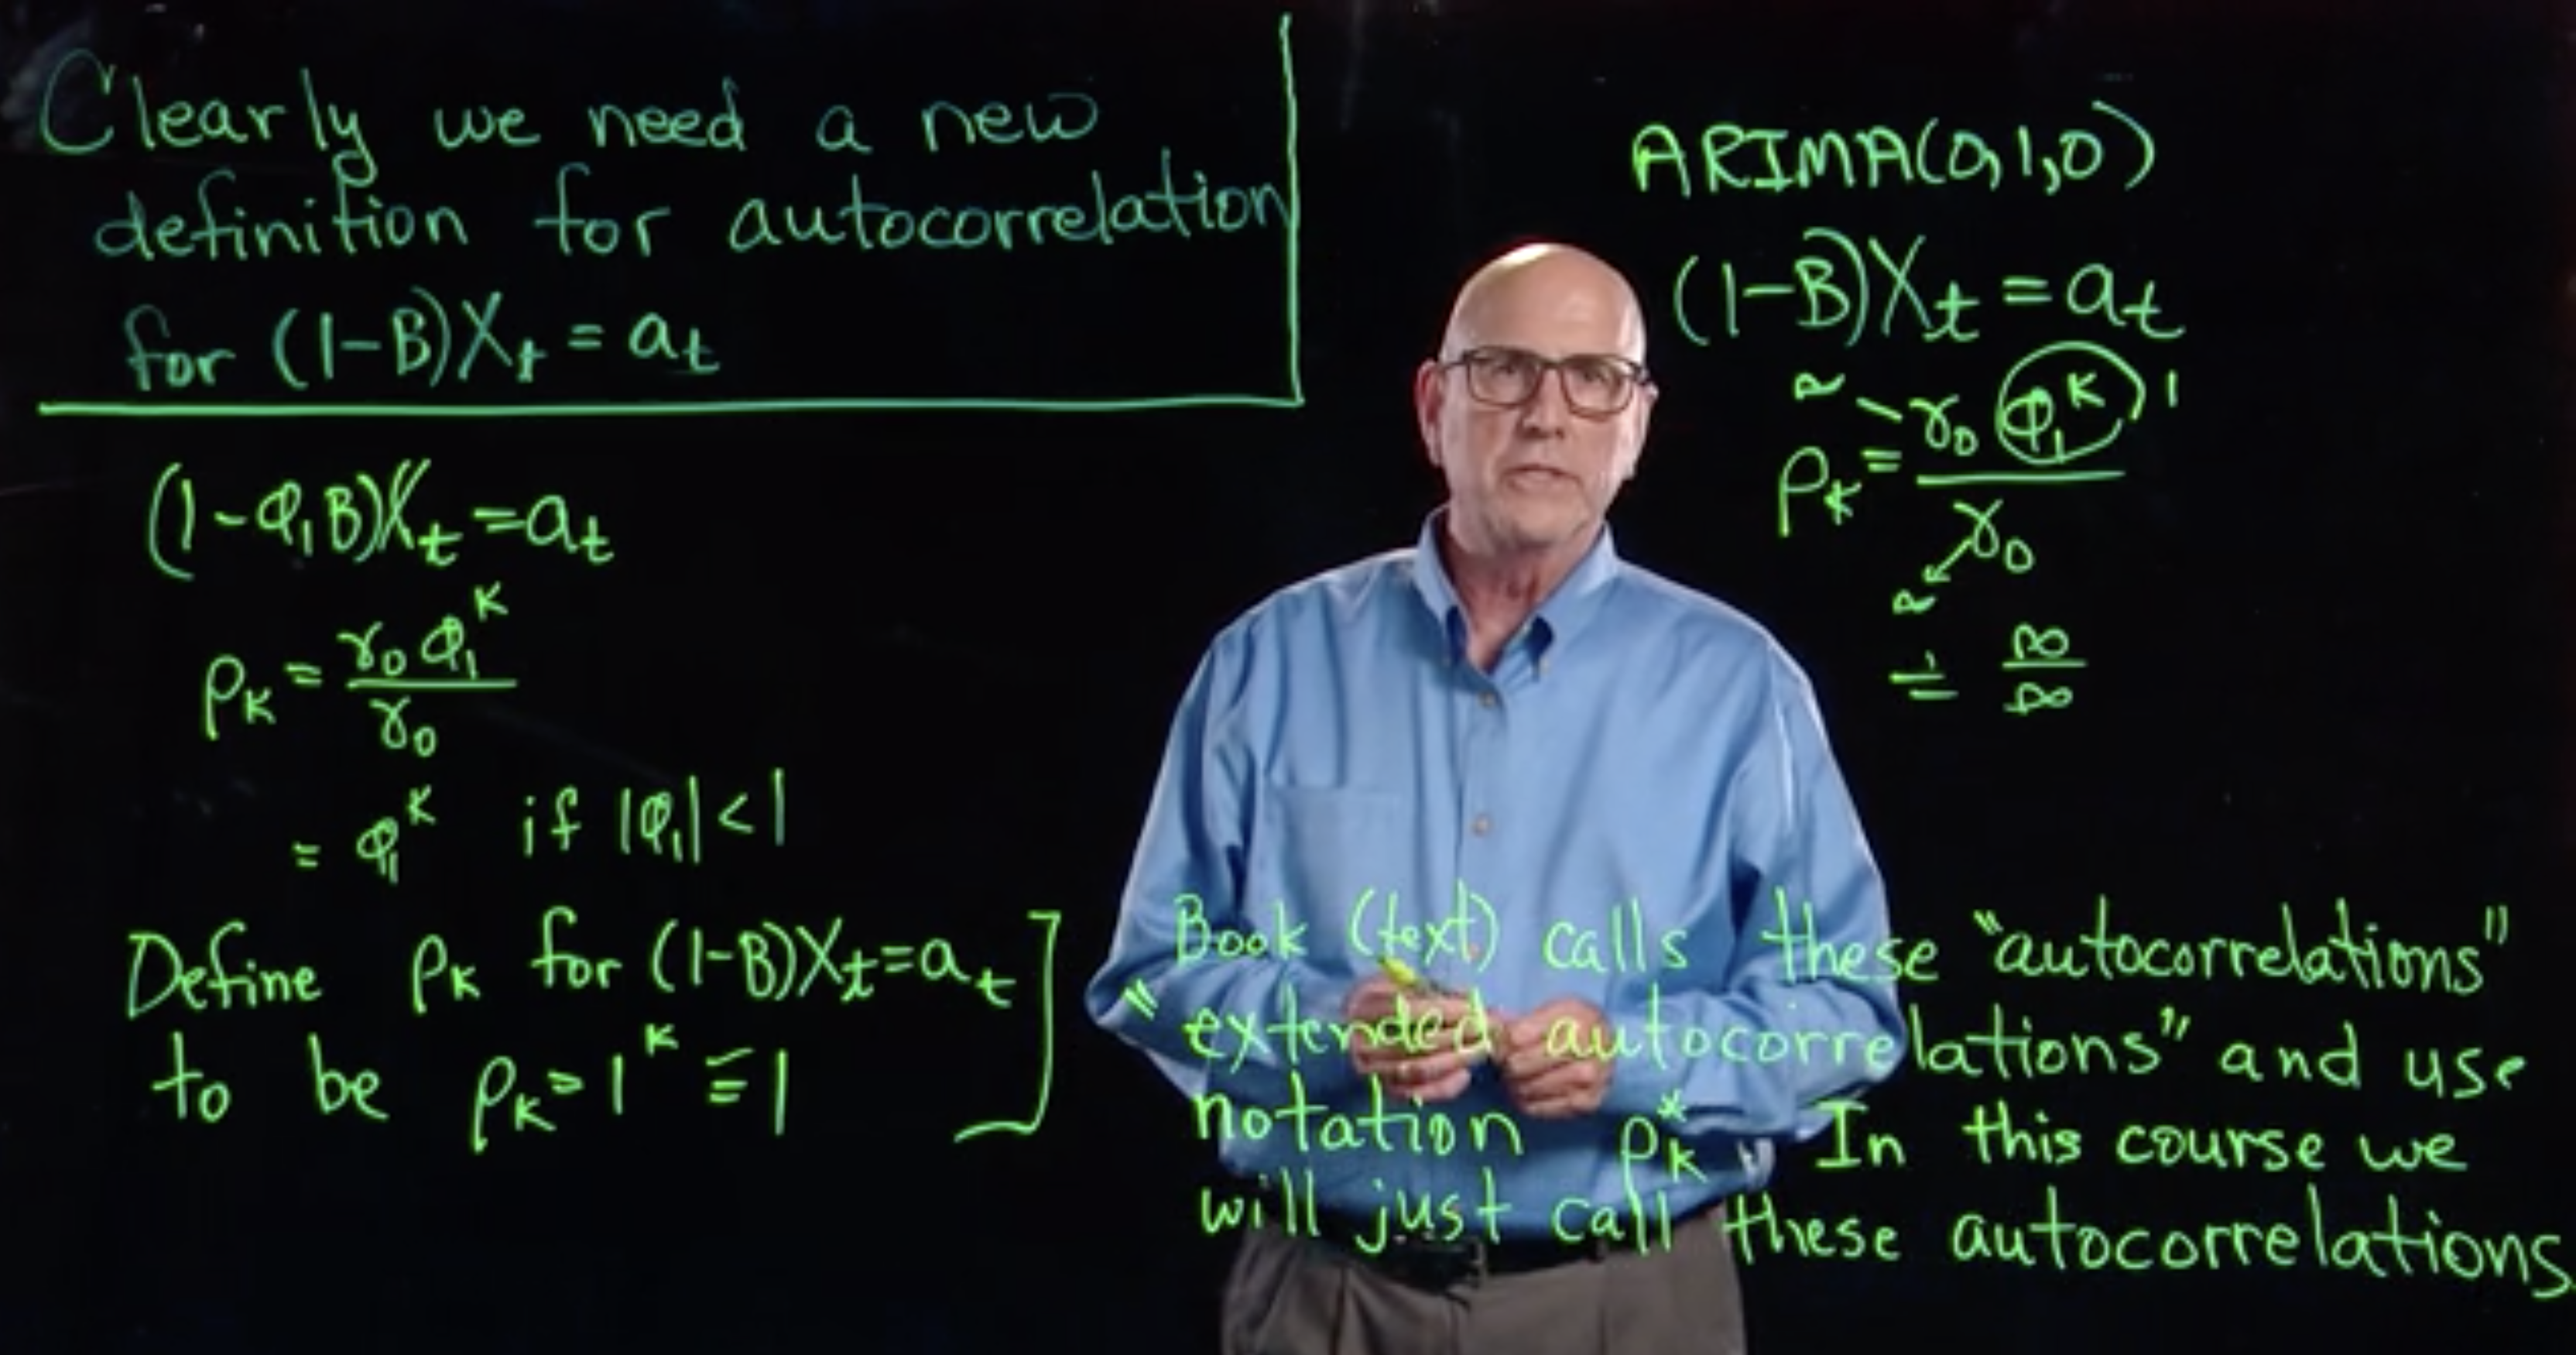 Clearly we need a new
definition for autocorrelation
for (1-B)Xₜ = aₜ
(1-φ₁B)Xₜ = aₜ
ρₖ = γ₀φ₁ᴷ / γ₀
= φ₁ᴷ if |φ₁| < 1
Define ρₖ for (1-B)Xₜ = aₜ
to be ρₖ = 1ᴷ ≡ 1
ARIMA(0,1,0)
(1-B)Xₜ = aₜ
∞ 1
ρₖ = γ₀ φ₁ᴷ / γ₀
∞
= ∞ / ∞
Book (text) calls these "autocorrelations"
"extended autocorrelations" and use
notation ρₖ*. In this course we
will just call these autocorrelations